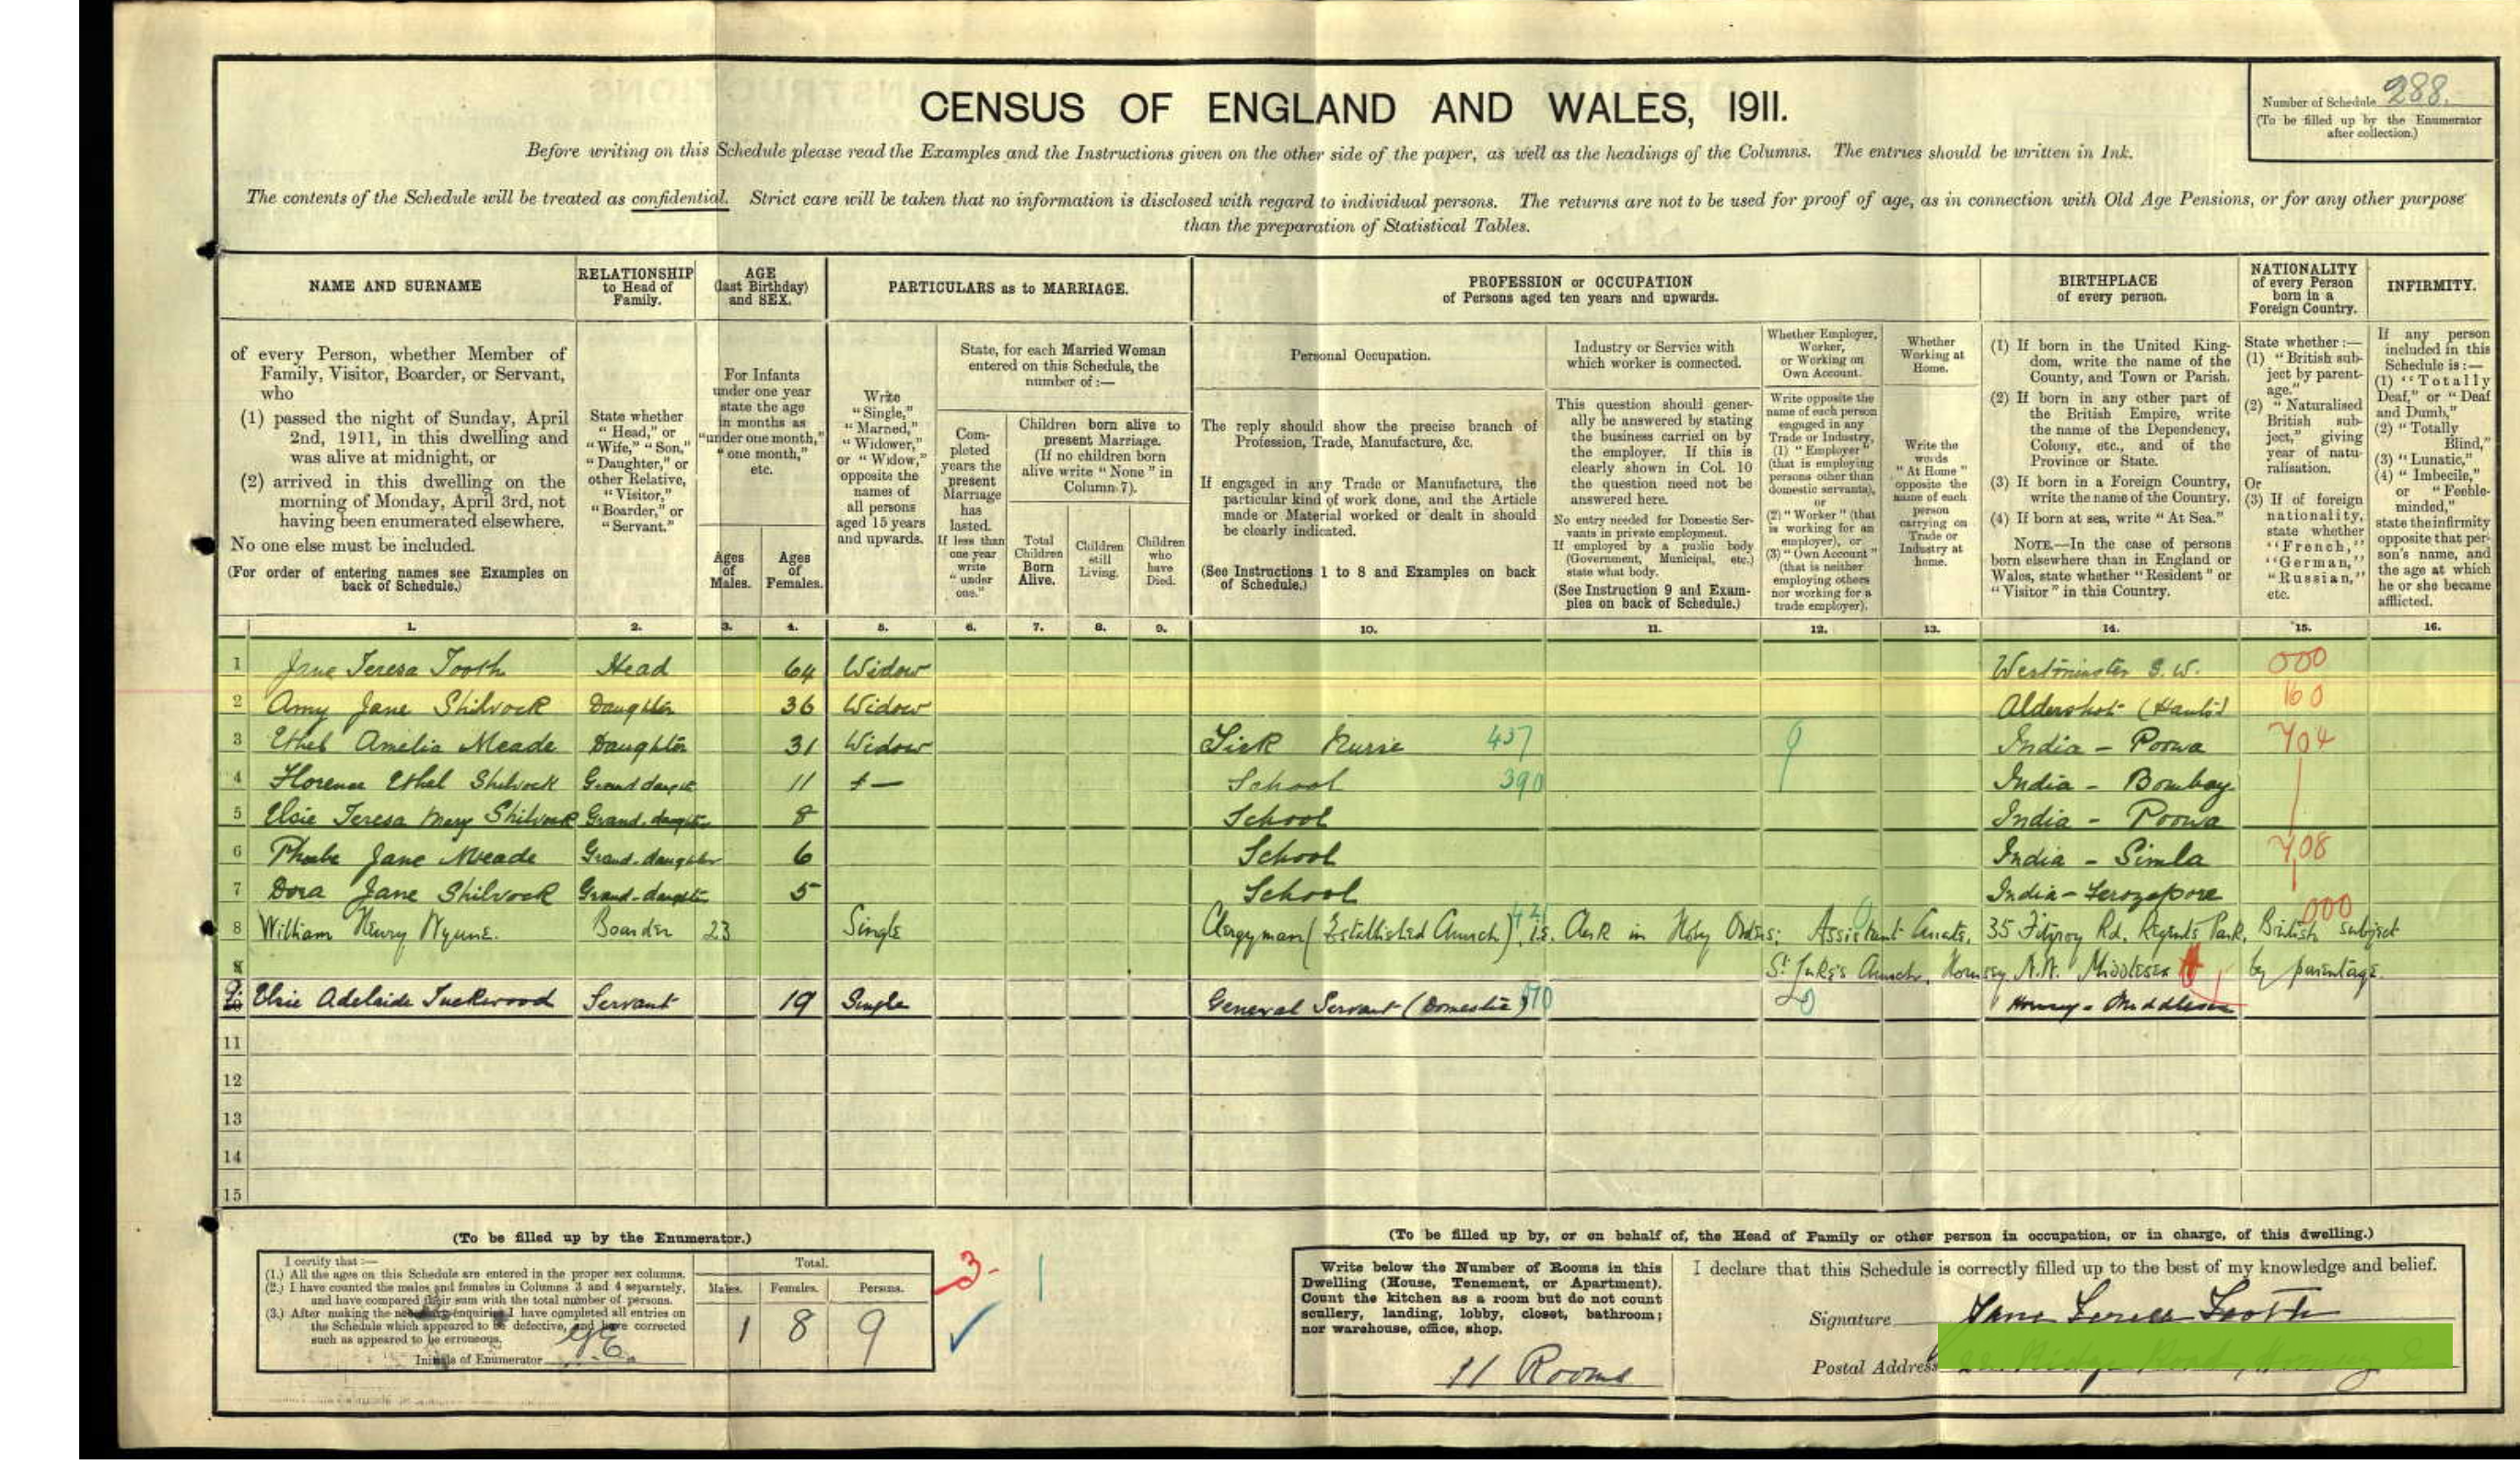 CENSUS OF ENGLAND AND WALES, 1911.
Number of Schedule 288.
(To be filled up by the Enumerator after collection.)
Before writing on this Schedule please read the Examples and the Instructions given on the other side of the paper, as well as the headings of the Columns. The entries should be written in Ink.
The contents of the Schedule will be treated as confidential. Strict care will be taken that no information is disclosed with regard to individual persons. The returns are not to be used for proof of age, as in connection with Old Age Pensions, or for any other purpose
than the preparation of Statistical Tables.
NAME AND SURNAME
of every Person, whether Member of
Family, Visitor, Boarder, or Servant,
who
(1) passed the night of Sunday, April
2nd, 1911, in this dwelling and
was alive at midnight, or
(2) arrived in this dwelling on the
morning of Monday, April 3rd, not
having been enumerated elsewhere.
No one else must be included.
(For order of entering names see Examples on
back of Schedule.)
RELATIONSHIP
to Head of
Family.
State whether
"Head," or
"Wife," "Son,"
"Daughter," or
other Relative,
"Visitor,"
"Boarder," or
"Servant."
AGE
(last Birthday)
and SEX.
For Infants
under one year
state the age
in months as
"under one month,"
"one month,"
etc.
Ages
of
Males.
Ages
of
Females.
PARTICULARS as to MARRIAGE.
Write
"Single,"
"Married,"
"Widower,"
or "Widow,"
opposite the
names of
all persons
aged 15 years
and upwards.
State, for each Married Woman
entered on this Schedule, the
number of :—
Com-
pleted
years the
present
Marriage
has
lasted.
If less than
one year
write
"under
one."
Children born alive to
present Marriage.
(If no children born
alive write "None" in
Column 7).
Total
Children
Born
Alive.
Children
still
Living.
Children
who
have
Died.
PROFESSION or OCCUPATION
of Persons aged ten years and upwards.
Personal Occupation.
The reply should show the precise branch of
Profession, Trade, Manufacture, &c.
If engaged in any Trade or Manufacture, the
particular kind of work done, and the Article
made or Material worked or dealt in should
be clearly indicated.
(See Instructions 1 to 8 and Examples on back
of Schedule.)
Industry or Service with
which worker is connected.
This question should gener-
ally be answered by stating
the business carried on by
the employer. If this is
clearly shown in Col. 10
the question need not be
answered here.
No entry needed for Domestic Ser-
vants in private employment.
If employed by a public body
(Government, Municipal, etc.)
state what body.
(See Instruction 9 and Exam-
ples on back of Schedule.)
Whether Employer,
Worker,
or Working on
Own Account.
Write opposite the
name of each person
engaged in any
Trade or Industry,
(1) "Employer"
(that is employing
persons other than
domestic servants),
or
(2) "Worker" (that
is working for an
employer), or
(3) "Own Account"
(that is neither
employing others
nor working for a
trade employer).
Whether
Working at
Home.
Write the
words
"At Home"
opposite the
name of each
person
carrying on
Trade or
Industry at
home.
BIRTHPLACE
of every person.
(1) If born in the United King-
dom, write the name of the
County, and Town or Parish.
(2) If born in any other part of
the British Empire, write
the name of the Dependency,
Colony, etc., and of the
Province or State.
(3) If born in a Foreign Country,
write the name of the Country.
(4) If born at sea, write "At Sea."
NOTE.—In the case of persons
born elsewhere than in England or
Wales, state whether "Resident" or
"Visitor" in this Country.
NATIONALITY
of every Person
born in a
Foreign Country.
State whether :—
(1) "British sub-
ject by parent-
age."
(2) "Naturalised
British sub-
ject," giving
year of natu-
ralisation.
Or
(3) If of foreign
nationality,
state whether
"French,"
"German,"
"Russian,"
etc.
INFIRMITY.
If any person
included in this
Schedule is :—
(1) "Totally
Deaf," or "Deaf
and Dumb,"
(2) "Totally
Blind,"
(3) "Lunatic,"
(4) "Imbecile,"
or "Feeble-
minded,"
state the infirmity
opposite that per-
son's name, and
the age at which
he or she became
afflicted.
1. 2. 3. 4. 5. 6. 7. 8. 9. 10. 11. 12. 13. 14. 15. 16.
1 Jane Teresa Tooth Head 64 Widow Westminster S.W. 000
2 Amy Jane Shilvock Daughter 36 Widow Aldershot (Hants) 160
3 Ethel Amelia Meade Daughter 31 Widow Sick Nurse 437 9 India - Poona 704
4 Florence Ethel Shilvock Grand daughter 11 School 390 India - Bombay
5 Elsie Teresa Mary Shilvock Grand-daughter 8 School India - Poona
6 Phoebe Jane Meade Grand-daughter 6 School India - Simla 708
7 Dora Jane Shilvock Grand-daughter 5 School India - Ferozepore
8 William Henry Wynne. Boarder 23 Single Clergyman (Established Church), i.e. Clerk in Holy Orders; Assistant Curate, 35 Fitzroy Rd, Regents Park, British subject 000
St Luke's Church, Hornsey, N. Middlesex by parentage.
Elsie Adelaide Tuckwood Servant 19 Single General Servant (Domestic) Hornsey - Middlesex
11
12
13
14
15
(To be filled up by the Enumerator.)
I certify that :—
(1.) All the ages on this Schedule are entered in the proper sex columns.
(2.) I have counted the males and females in Columns 3 and 4 separately,
and have compared their sum with the total number of persons.
(3.) After making the necessary enquiries I have completed all entries on
the Schedule which appeared to be defective, and have corrected
such as appeared to be erroneous.
Initials of Enumerator
Total.
Males. Females. Persons.
1 8 9
3- 1
(To be filled up by, or on behalf of, the Head of Family or other person in occupation, or in charge, of this dwelling.)
Write below the Number of Rooms in this
Dwelling (House, Tenement, or Apartment).
Count the kitchen as a room but do not count
scullery, landing, lobby, closet, bathroom;
nor warehouse, office, shop.
11 Rooms
I declare that this Schedule is correctly filled up to the best of my knowledge and belief.
Signature Jane Teresa Tooth
Postal Address